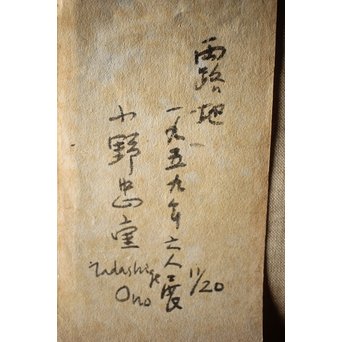 露路地
一九五九年六人展
11/20
小野忠重
Tadashige
Ono